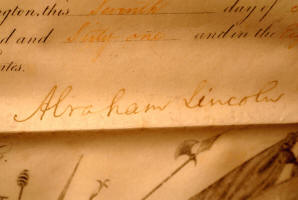 ngton, this Seventh day of
d and Sixty one and in the
ates.
Abraham Lincoln